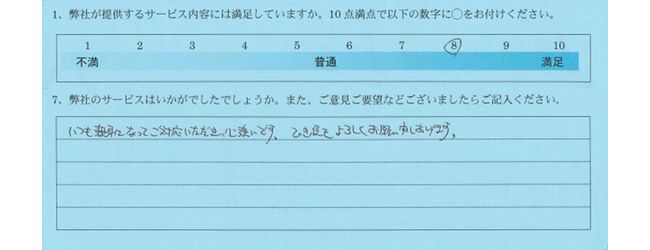 1、弊社が提供するサービス内容には満足していますか。10点満点で以下の数字に○をお付けください。
1 2 3 4 5 6 7 8 9 10
不満 普通 満足
7、弊社のサービスはいかがでしたでしょうか。また、ご意見ご要望などございましたらご記入ください。
いつも親身になってご対応いただき、心強いです。 ひき続きよろしくお願い申しあげます。